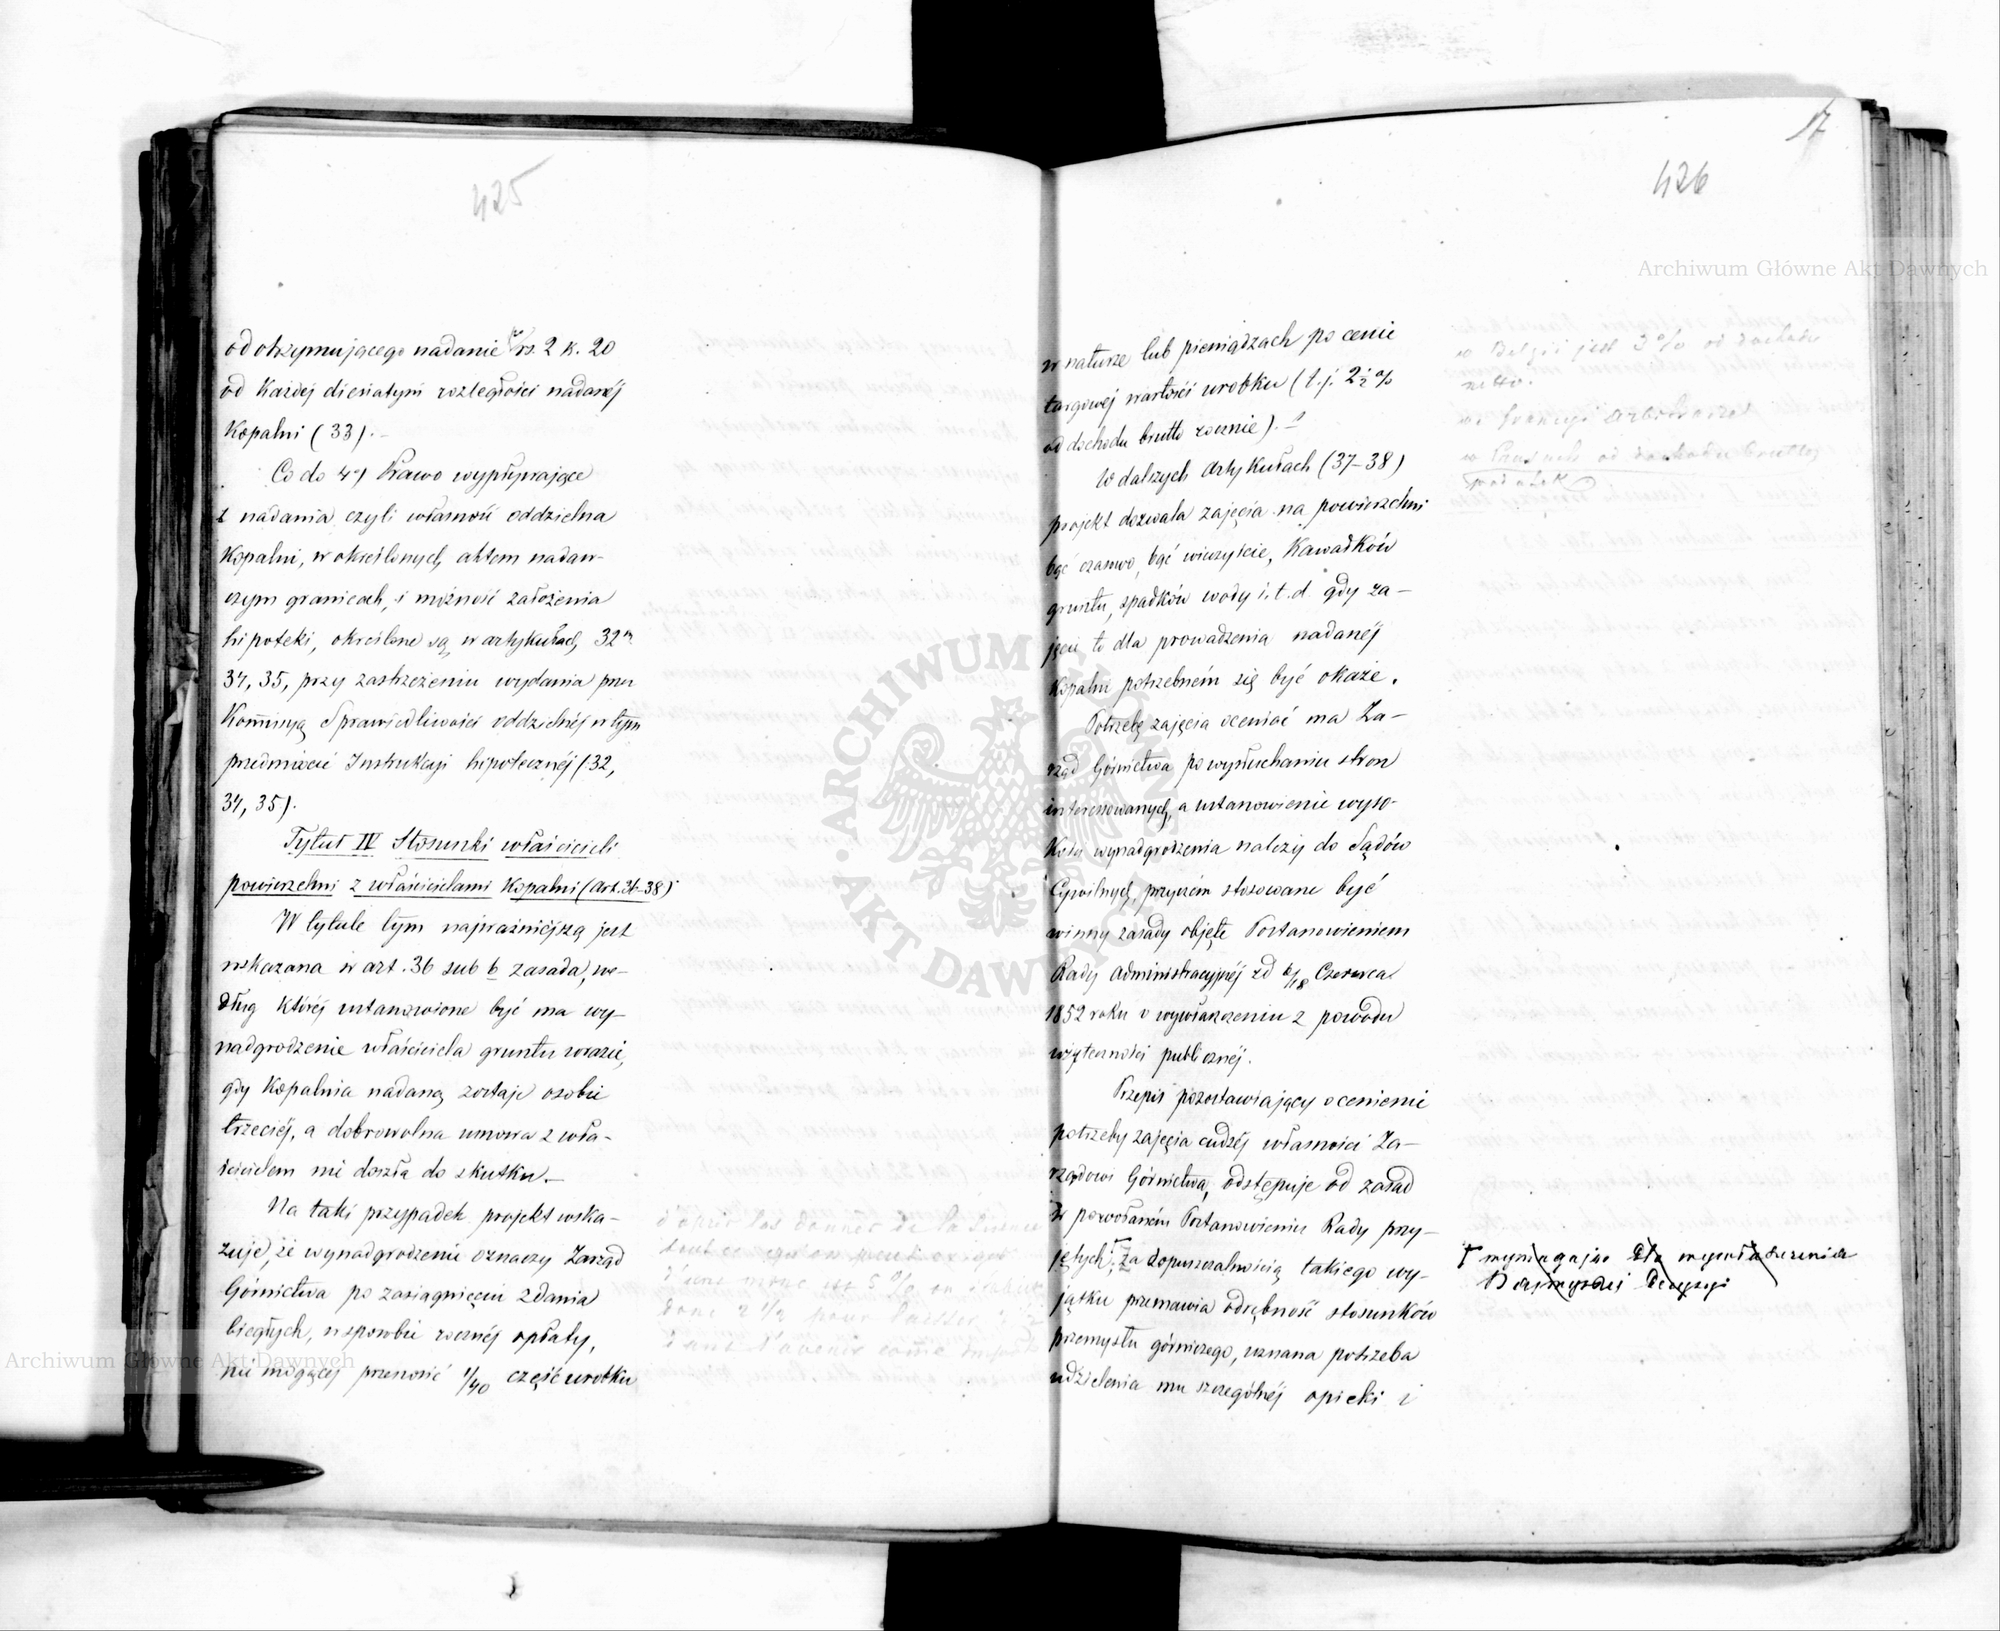 425
od otrzymującego nadanie rs. 2 k. 20
od każdej diesiatyni rozległości nadanéj
Kopalni (33).–
Co do 4º) Prawo wypływające
z nadania czyli własność oddzielna
Kopalni, w określonych aktem nadaw-
czym granicach, i możność założenia
hipoteki, określone są w artykułach 32
34, 35, przy zastrzeżeniu wydania przez
Kommisyą Sprawiedliwości oddzielnéj w tym
przedmiocie Instrukcyi hipotecznéj (32,
34, 35).
Tytuł IV Stosunki właścicieli
powierzchni z właścicielami Kopalni (art. 31–38)
W tytule tym najważniejszą jest
wskazana w art. 36 sub b zasada, we-
dług któréj ustanowione być ma wy-
nadgrodzenie właściciela gruntu w razie,
gdy Kopalnia nadaną zostaje osobie
trzeciéj, a dobrowolna umowa z wła-
ścicielem nie doszła do skutku.–
Na taki przypadek projekt wska-
zuje, że wynadgrodzenie oznaczy Zarząd
Górnictwa po zasiągnięciu zdania
biegłych, w sposobie rocznéj opłaty,
nie mogącéj przenosić 1/40 część urobku
d'après les données de la
17
426
w naturze lub pieniądzach po cenie
targowéj wartości urobku (t.j. 2½ %
od dochodu brutto rocznie).–
W dalszych artykułach (37–38)
projekt dozwala zajęcia na powierzchni
bąć czasowo, bąć wieczyście, Kawałków
gruntu, spadków wody i.t.d. gdy za-
jęcie to dla prowadzenia nadanéj
Kopalni potrzebném się być okaże.
Potrzebę zajęcia oceniać ma Za-
rząd Górnictwa po wysłuchaniu stron
interessowanych, a ustanowienie wyso-
kości wynadgrodzenia należy do Sądów
Cywilnych, przyczém stosowane być
winny zasady objęte Postanowieniem
Rady Administracyjnéj z d 6/18 Czerwca
1852 roku o wywłaszczeniu z powodu
użyteczności publicznéj.
Przepis pozostawiający ocenienie
potrzeby zajęcia cudzéj własności Za-
rządowi Górnictwa, odstępuje od zasad
w powołaném Postanowieniu Rady przy-
jętych; za dopuszczalnością takiego wy-
jątku przemawia odrębność stosunków
przemysłu górniczego, uznana potrzeba
udzielenia mu szczególnéj opieki i
w Belgii jest 3% od dochodu
netto.
we Francyi
w Prusach od dochodu brutto
podatek
wymagając dla wywłaszczenia
Najwyższéj Decyzyi
Archiwum Główne Akt Dawnych
Archiwum Główne Akt Dawnych
ARCHIWUM GŁÓWNE AKT DAWNYCH